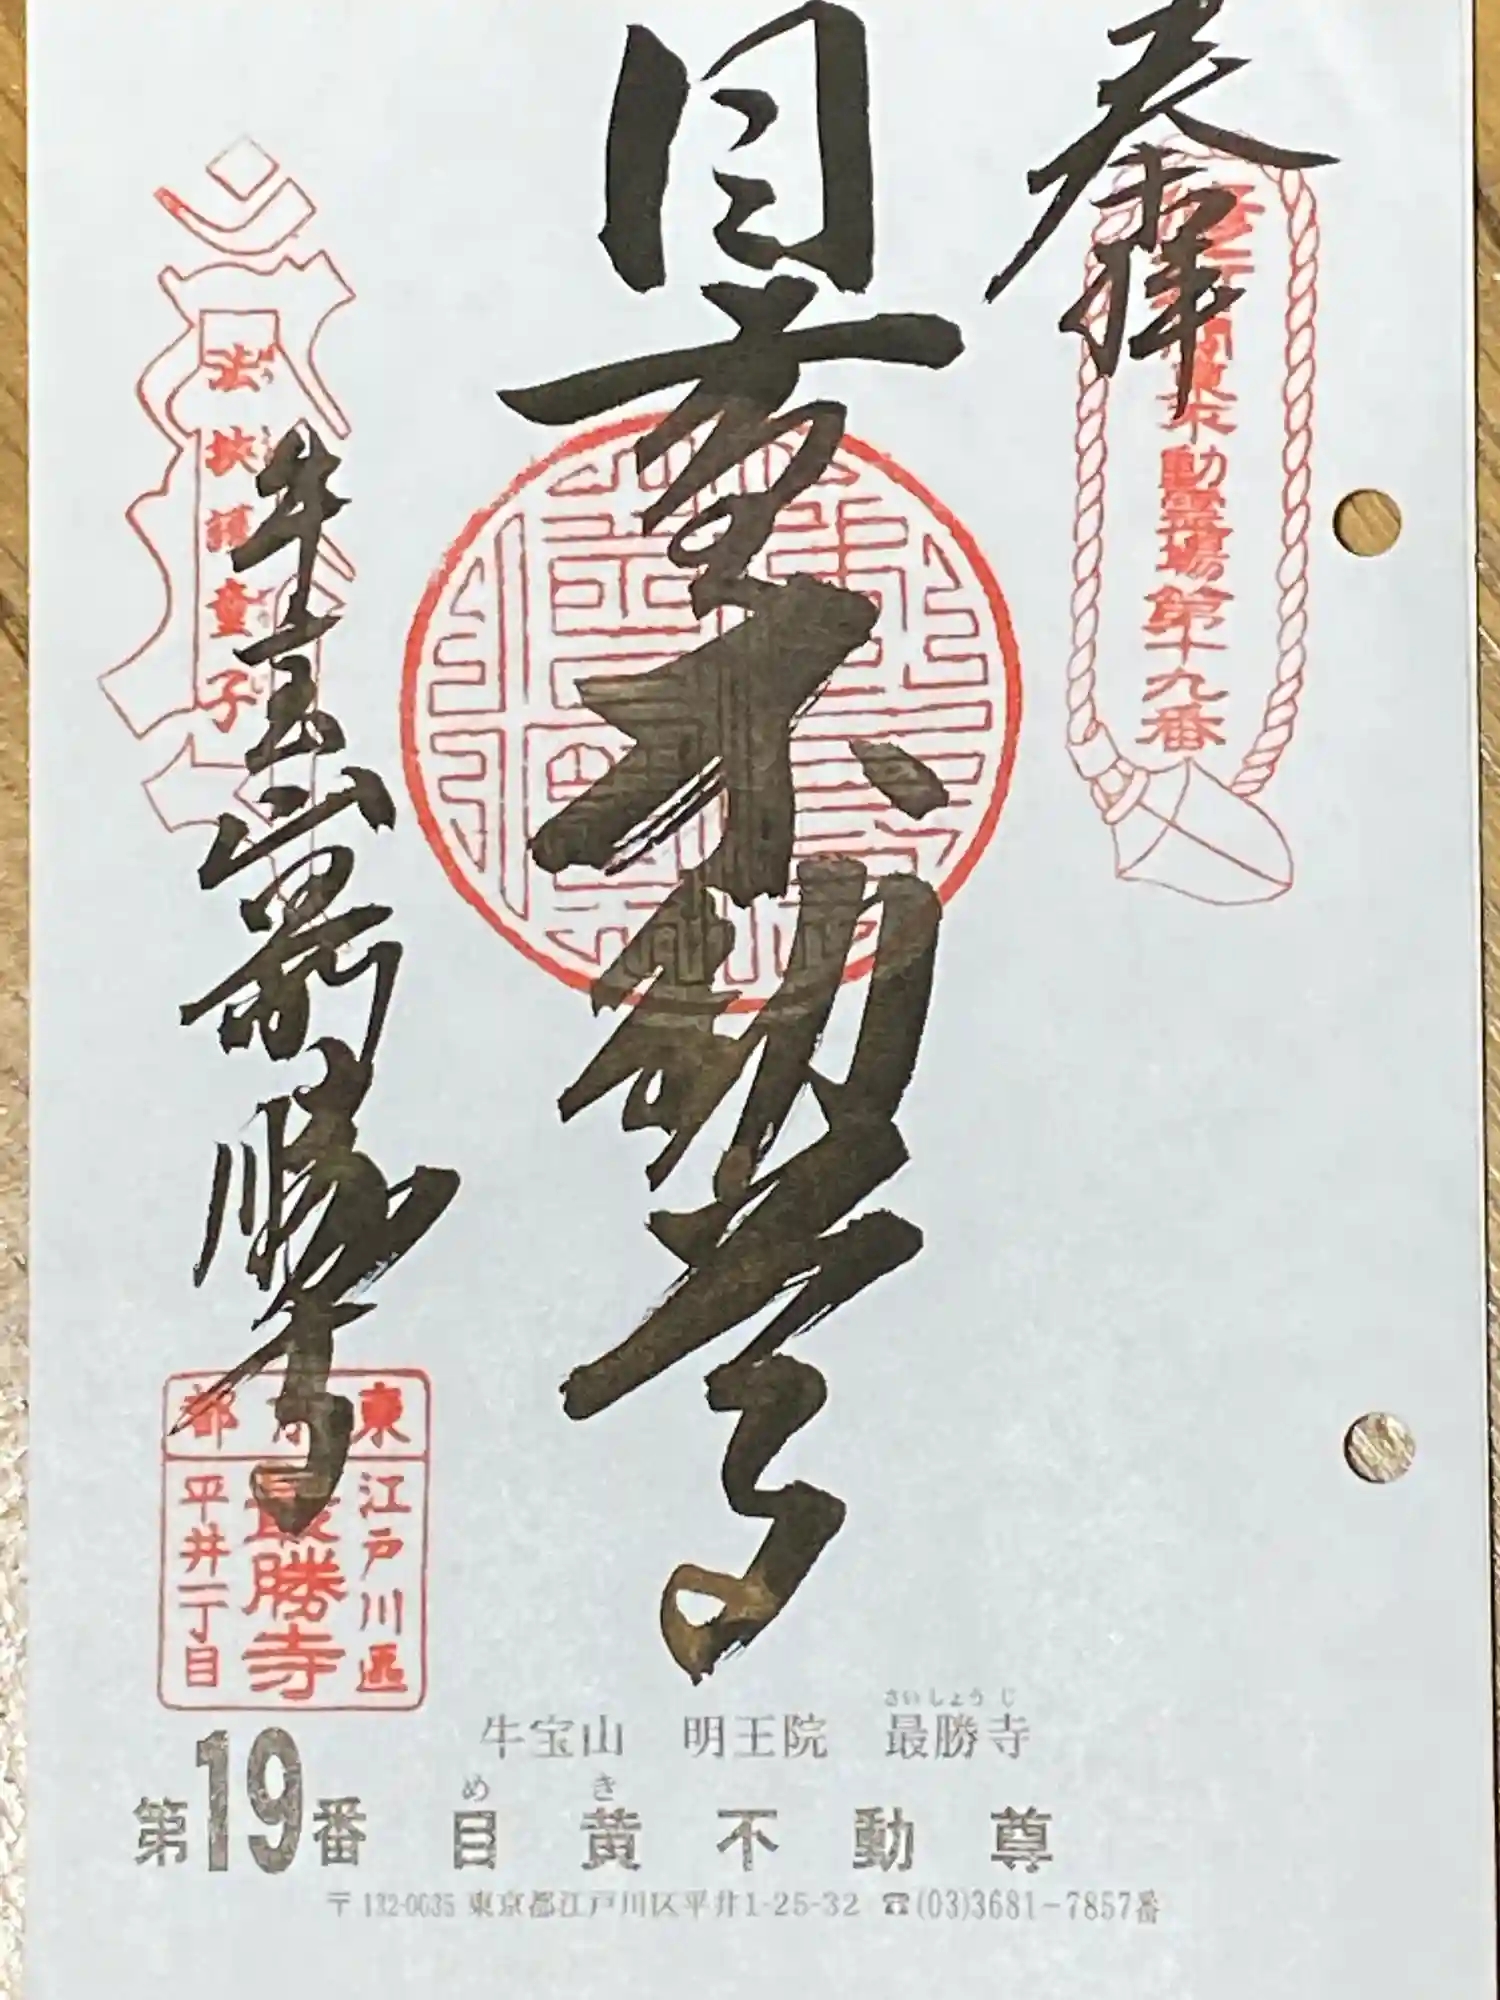 奉拝
関東不動霊場第十九番
目黄不動尊
法挟護童子
牛宝山最勝寺
東京都
江戸川区
最勝寺
平井一丁目
さいしょうじ
牛宝山 明王院 最勝寺
め き
第19番 目黄不動尊
〒132-0035 東京都江戸川区平井1-25-32 ☎(03)3681-7857番